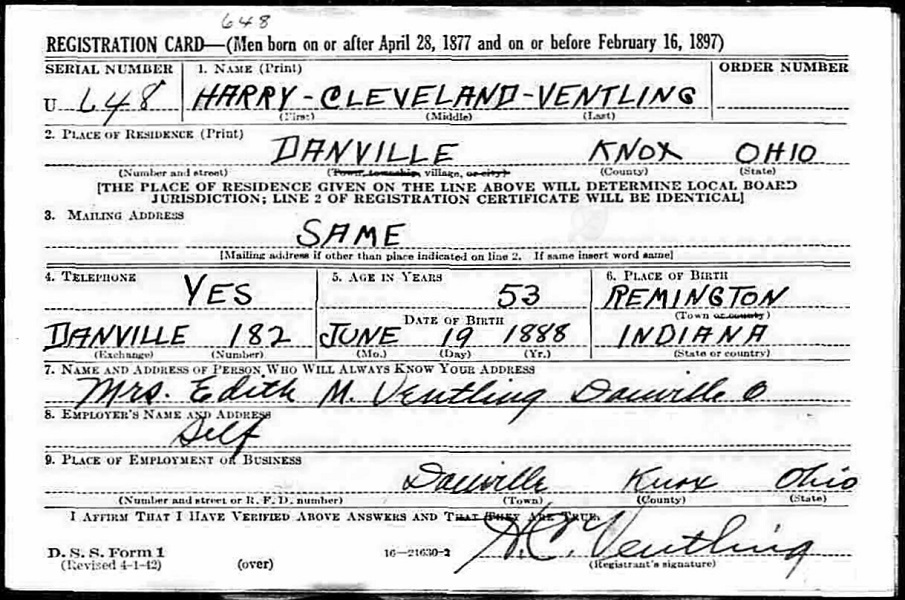 648
REGISTRATION CARD—(Men born on or after April 28, 1877 and on or before February 16, 1897)
SERIAL NUMBER 1. NAME (Print) ORDER NUMBER
U 648 HARRY-CLEVELAND-VENTLING
(First) (Middle) (Last)
2. PLACE OF RESIDENCE (Print)
DANVILLE KNOX OHIO
(Number and street) (Town, township, village, or city) (County) (State)
[THE PLACE OF RESIDENCE GIVEN ON THE LINE ABOVE WILL DETERMINE LOCAL BOARD
JURISDICTION; LINE 2 OF REGISTRATION CERTIFICATE WILL BE IDENTICAL]
3. MAILING ADDRESS
SAME
[Mailing address if other than place indicated on line 2. If same insert word same]
4. TELEPHONE 5. AGE IN YEARS 6. PLACE OF BIRTH
YES 53 REMINGTON
DATE OF BIRTH (Town or county)
DANVILLE 182 JUNE 19 1888 INDIANA
(Exchange) (Number) (Mo.) (Day) (Yr.) (State or country)
7. NAME AND ADDRESS OF PERSON WHO WILL ALWAYS KNOW YOUR ADDRESS
Mrs. Edith M. Ventling Danville O
8. EMPLOYER'S NAME AND ADDRESS
Self
9. PLACE OF EMPLOYMENT OR BUSINESS
Danville Knox Ohio
(Number and street or R. F. D. number) (Town) (County) (State)
I AFFIRM THAT I HAVE VERIFIED ABOVE ANSWERS AND THAT THEY ARE TRUE.
H.C. Ventling
D. S. S. Form 1 16—21630-2
(Revised 4-1-42) (over) (Registrant's signature)